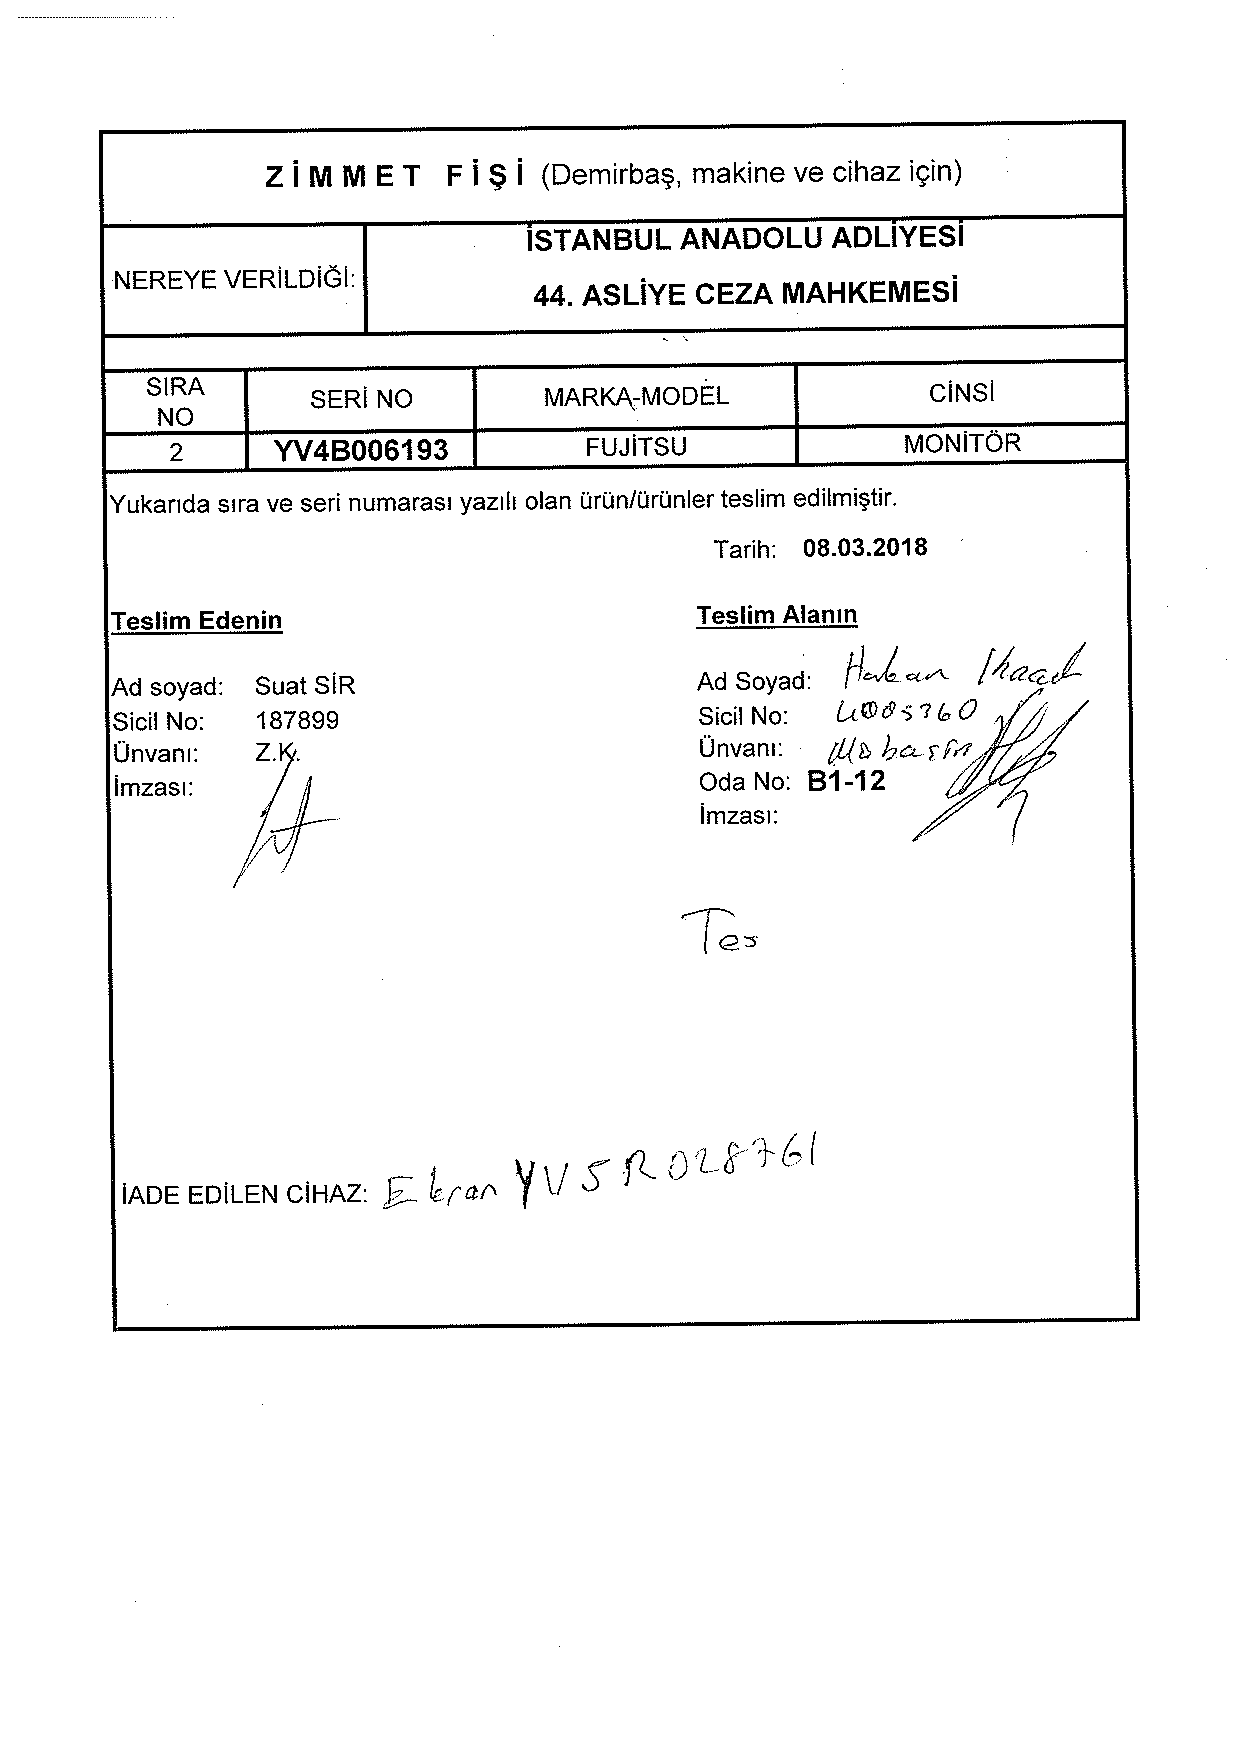 ZİMMET FİŞİ (Demirbaş, makine ve cihaz için)
NEREYE VERİLDİĞİ:
İSTANBUL ANADOLU ADLİYESİ
44. ASLİYE CEZA MAHKEMESİ
SIRA NO SERİ NO MARKA-MODEL CİNSİ
2 YV4B006193 FUJİTSU MONİTÖR
Yukarıda sıra ve seri numarası yazılı olan ürün/ürünler teslim edilmiştir.
Tarih: 08.03.2018
Teslim Edenin
Ad soyad: Suat SİR
Sicil No: 187899
Ünvanı: Z.K.
İmzası:
Teslim Alanın
Ad Soyad: Hakan
Sicil No:
Ünvanı: Mübaşir
Oda No: B1-12
İmzası:
Tes
İADE EDİLEN CİHAZ: Ekran YV5R028761